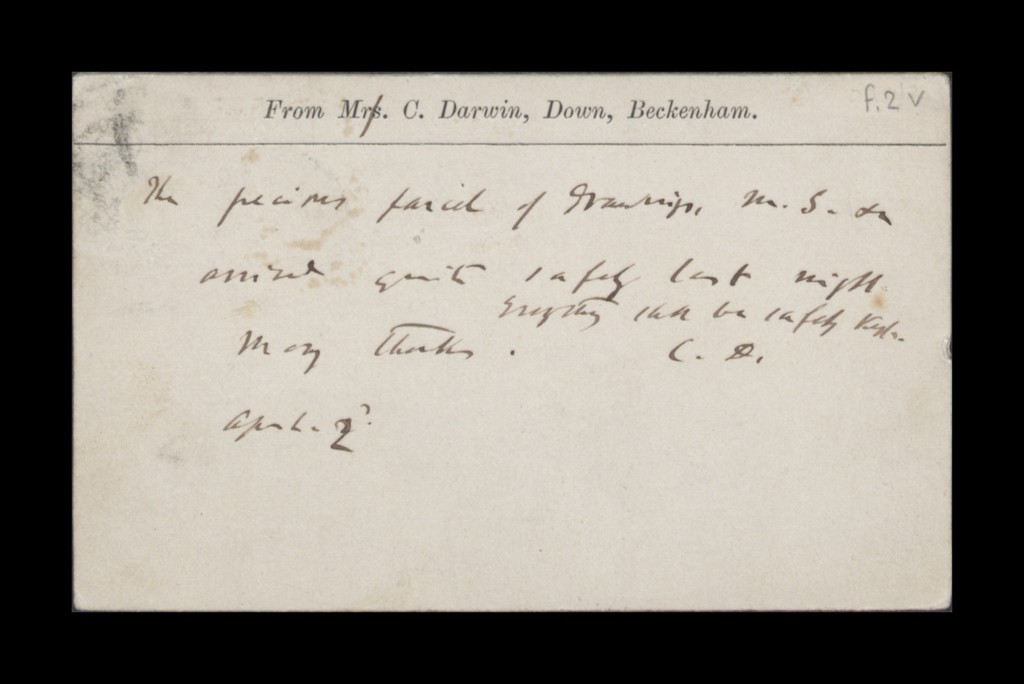 f.2 v
From Mrs. C. Darwin, Down, Beckenham.
The precious parcel of Drawings, M.S. &c
arrived quite safely last night.
Everything shall be safely kept.
Many thanks. C. D.
April. 2d.